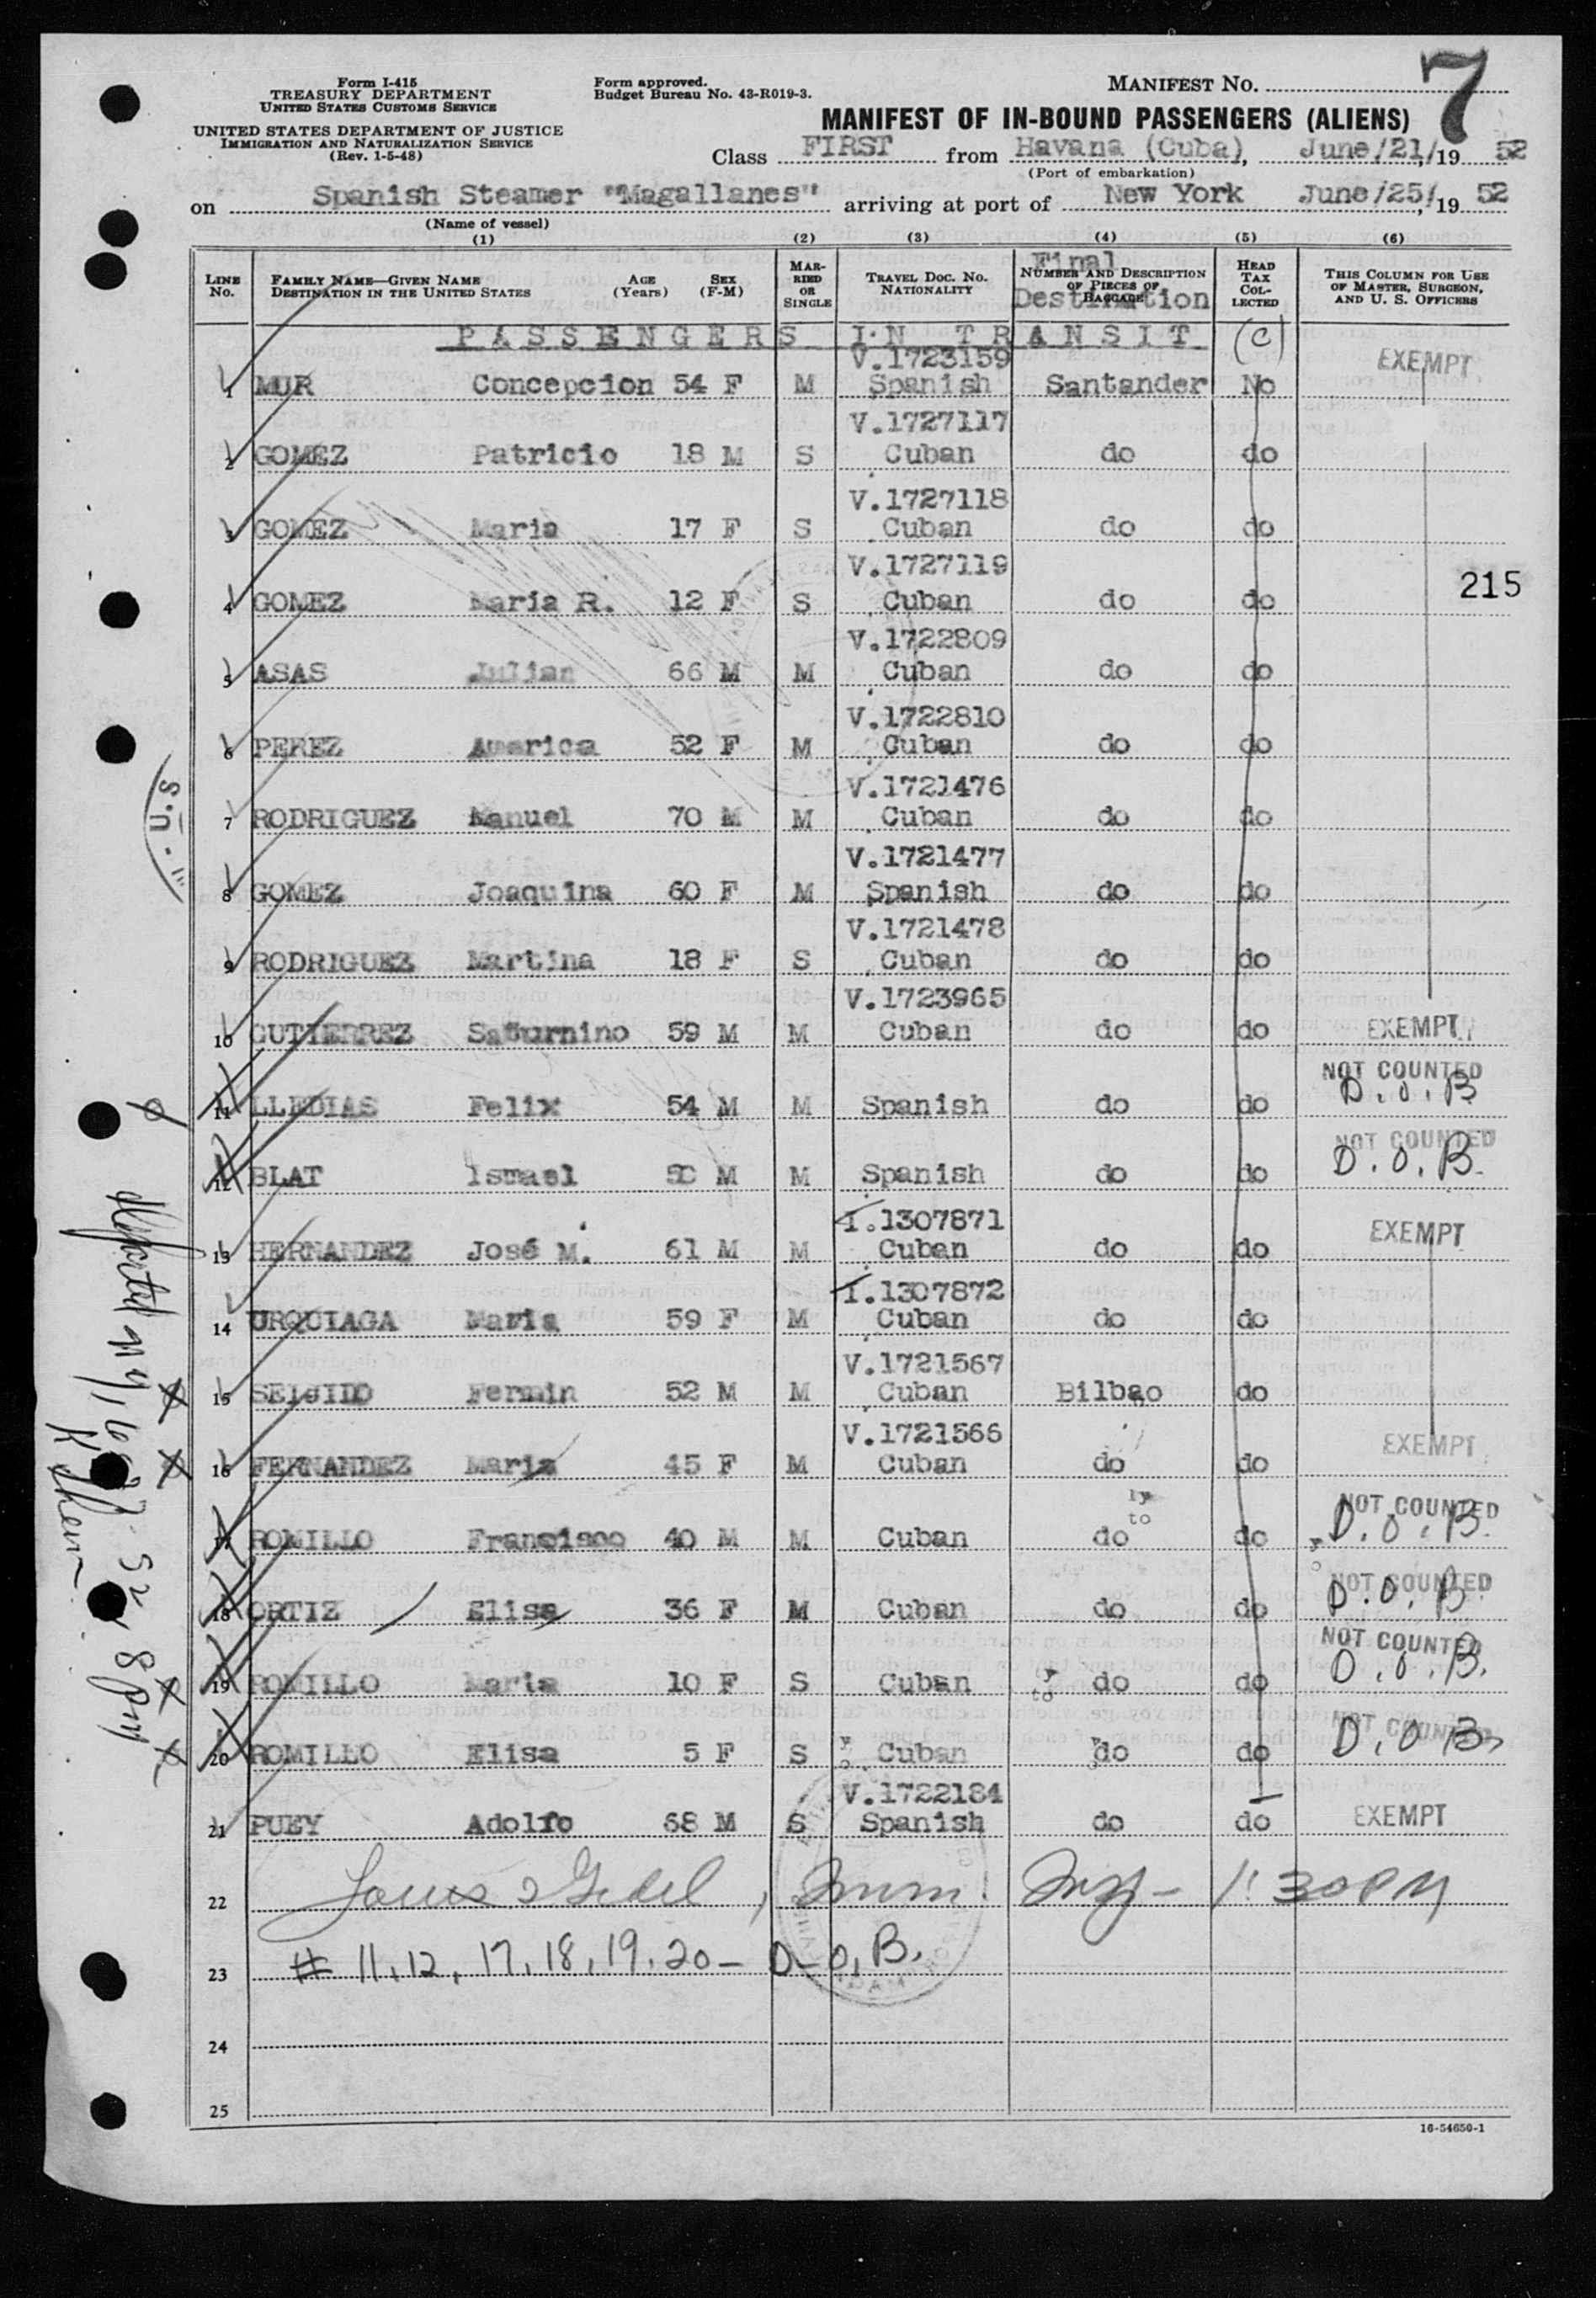 Form I-415
TREASURY DEPARTMENT
UNITED STATES CUSTOMS SERVICE
UNITED STATES DEPARTMENT OF JUSTICE
IMMIGRATION AND NATURALIZATION SERVICE
(Rev. 1-5-48)
Form approved.
Budget Bureau No. 43-R019-3.
MANIFEST No. 7
MANIFEST OF IN-BOUND PASSENGERS (ALIENS)
Class FIRST from Havana (Cuba), June/21/19 52
(Port of embarkation)
on Spanish Steamer "Magallanes" arriving at port of New York June/25/, 19 52
(Name of vessel)
(1) (2) (3) (4) (5) (6)
LINE No. FAMILY NAME—GIVEN NAME DESTINATION IN THE UNITED STATES AGE (Years) SEX (F-M) MARRIED OR SINGLE TRAVEL DOC. No. NATIONALITY NUMBER AND DESCRIPTION OF PIECES OF BAGGAGE Final Destination HEAD TAX COLLECTED THIS COLUMN FOR USE OF MASTER, SURGEON, AND U. S. OFFICERS
PASSENGERS IN TRANSIT (C)
V.1723159 EXEMPT
1 MUR Concepcion 54 F M Spanish Santander No
V.1727117
2 GOMEZ Patricio 18 M S Cuban do do
V.1727118
3 GOMEZ Maria 17 F S Cuban do do
V.1727119
215
4 GOMEZ Maria R. 12 F S Cuban do do
V.1722809
5 ASAS Julian 66 M M Cuban do do
V.1722810
6 PEREZ America 52 F M Cuban do do
V.1721476
7 RODRIGUEZ Manuel 70 M M Cuban do do
V.1721477
8 GOMEZ Joaquina 60 F M Spanish do do
V.1721478
9 RODRIGUEZ Martina 18 F S Cuban do do
V.1723965
10 GUTIERREZ Saturnino 59 M M Cuban do do EXEMPT
NOT COUNTED
11 LLEDIAS Felix 54 M M Spanish do do D.O.B
NOT COUNTED
12 BLAT Ismael 50 M M Spanish do do D.O.B.
I.1307871 EXEMPT
13 HERNANDEZ José M. 61 M M Cuban do do
I.1307872
14 URQUIAGA Maria 59 F M Cuban do do
V.1721567
15 Fermin 52 M M Cuban Bilbao do
V.1721566 EXEMPT
16 FERNANDEZ Maria 45 F M Cuban do do
ly
to
NOT COUNTED
17 ROMILLO Francisco 40 M M Cuban do do D.O.B.
NOT COUNTED
18 ORTIZ Elisa 36 F M Cuban do do D.O.B.
NOT COUNTED
19 ROMILLO Maria 10 F S Cuban do do D.O.B.
NOT COUNTED
20 ROMILLO Elisa 5 F S Cuban do do D.O.B.
V.1722184
21 PUEY Adolfo 68 M S Spanish do do EXEMPT
22 Louis Imm. Insp- 1:30PM
23 # 11, 12, 17, 18, 19, 20 - D-O.B.
24
25
16-54650-1